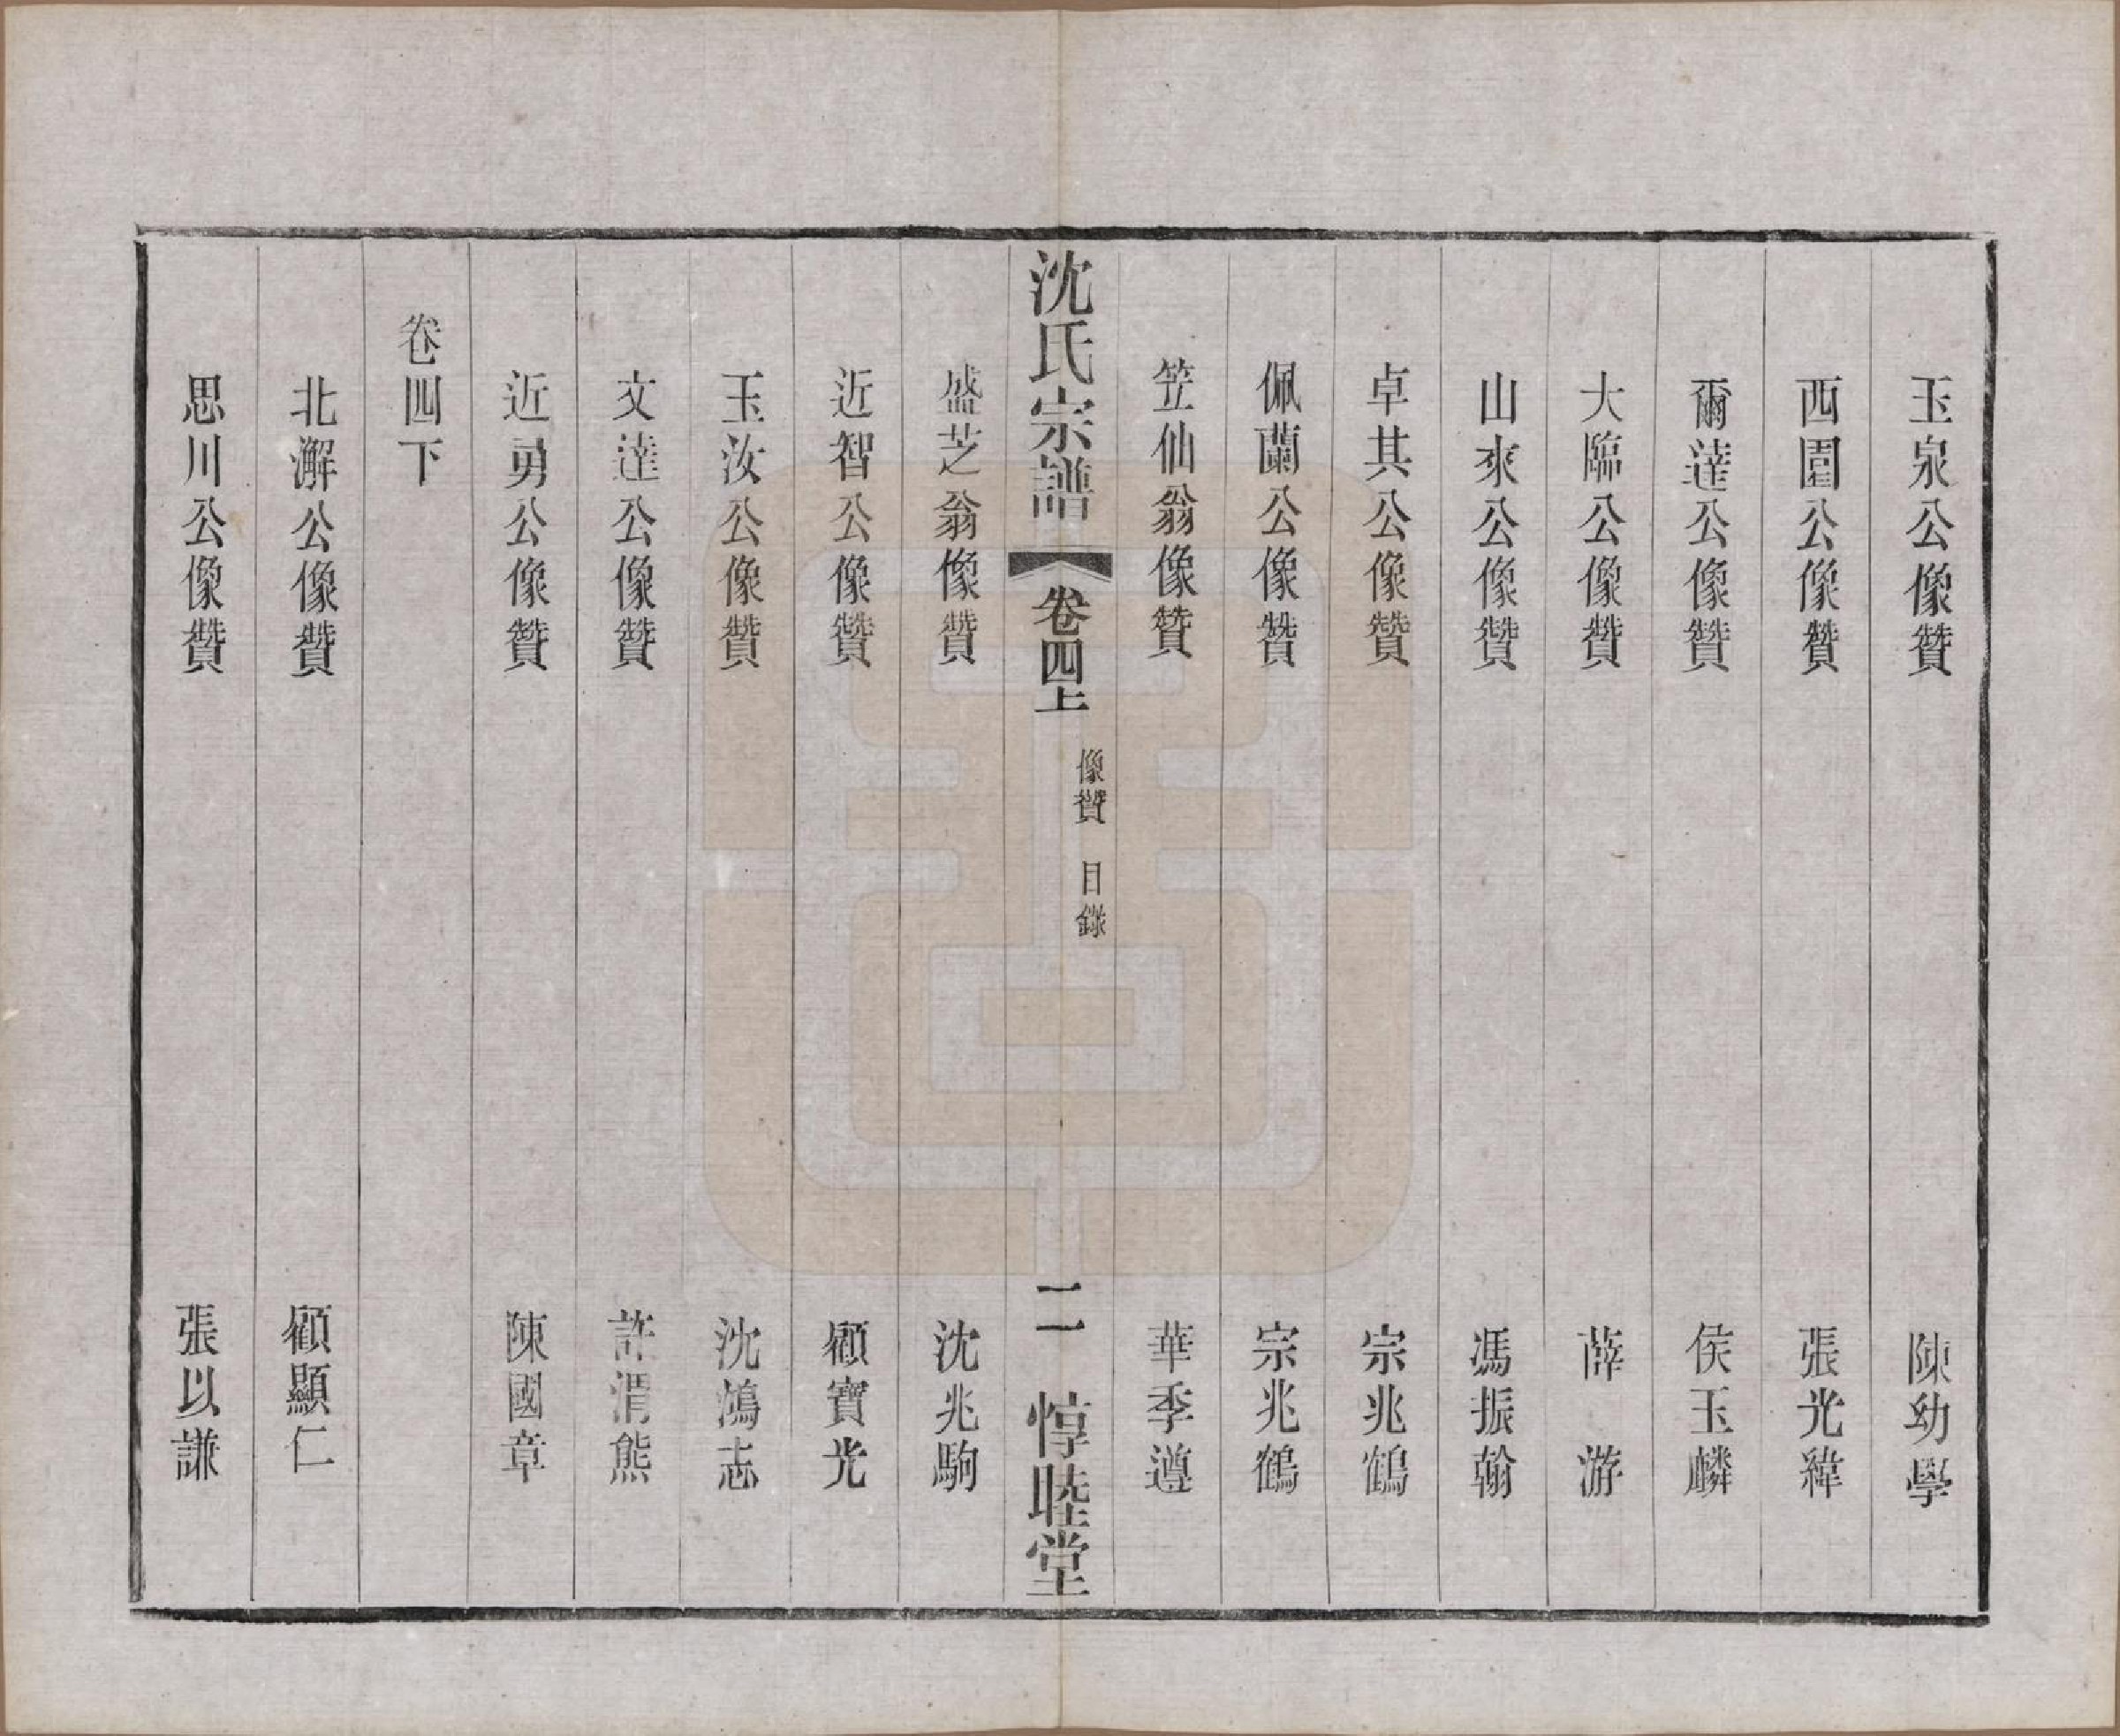 玉泉公像贊 陳幼學
西園公像贊 張光緯
爾達公像贊 侯玉麟
大臨公像贊 薛游
山來公像贊 馮振翰
卓其公像贊 宗兆鶴
佩蘭公像贊 宗兆鶴
笠仙翁像贊 華季遵
沈氏宗譜 卷四上 像贊 目錄 二 惇睦堂
盛芝翁像贊 沈兆駒
近智公像贊 顧寶光
玉汝公像贊 沈鴻志
文達公像贊 許渭熊
近勇公像贊 陳國章
卷四下
北澥公像贊 顧顯仁
思川公像贊 張以謙